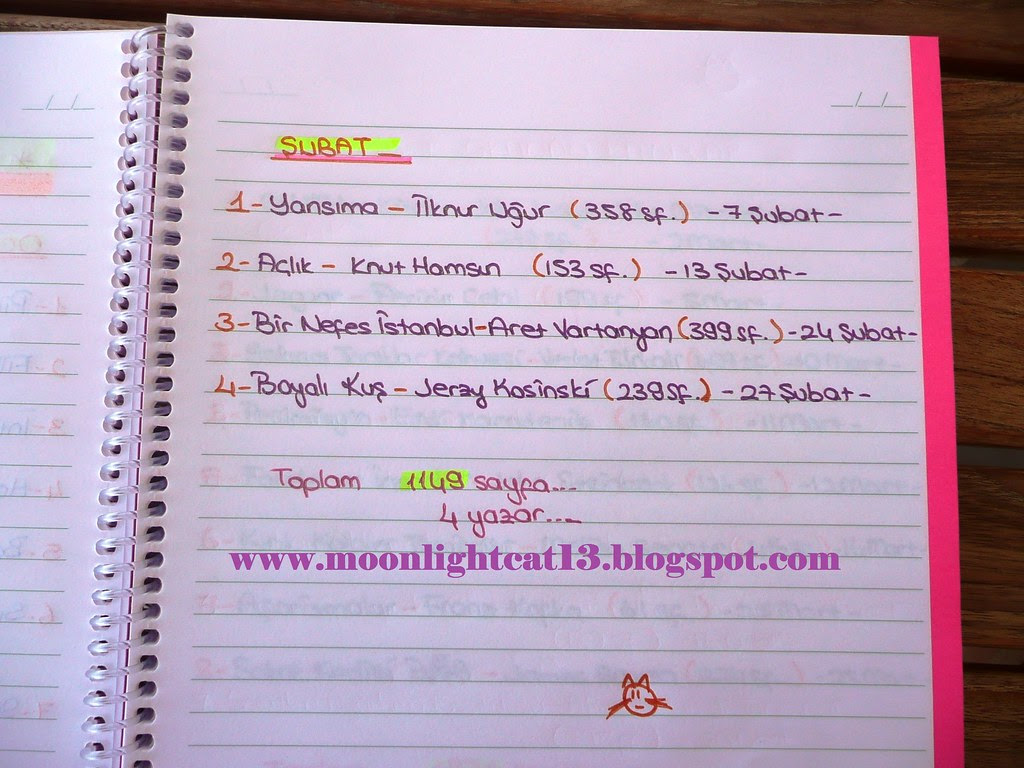 __/__/__
__/__/__
ŞUBAT _
1- Yansıma - İlknur Uğur (358 sf.) - 7 Şubat -
2- Açlık - Knut Hamsun (153 sf.) - 13 Şubat -
3- Bir Nefes İstanbul - Aret Vartanyan (399 sf.) - 24 Şubat -
4- Boyalı Kuş - Jerzy Kosinski (239 sf.) - 27 Şubat -
Toplam 1149 sayfa...
4 yazar....
www.moonlightcat13.blogspot.com